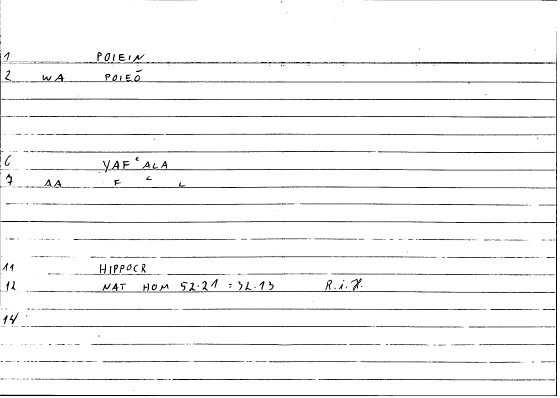 1 POIEIN
2 WA POIEŌ
6 YAFʿALA
7 AA F ʿ L
11 HIPPOCR
12 NAT HOM 52.21 = 32.13 R.i.H.
14